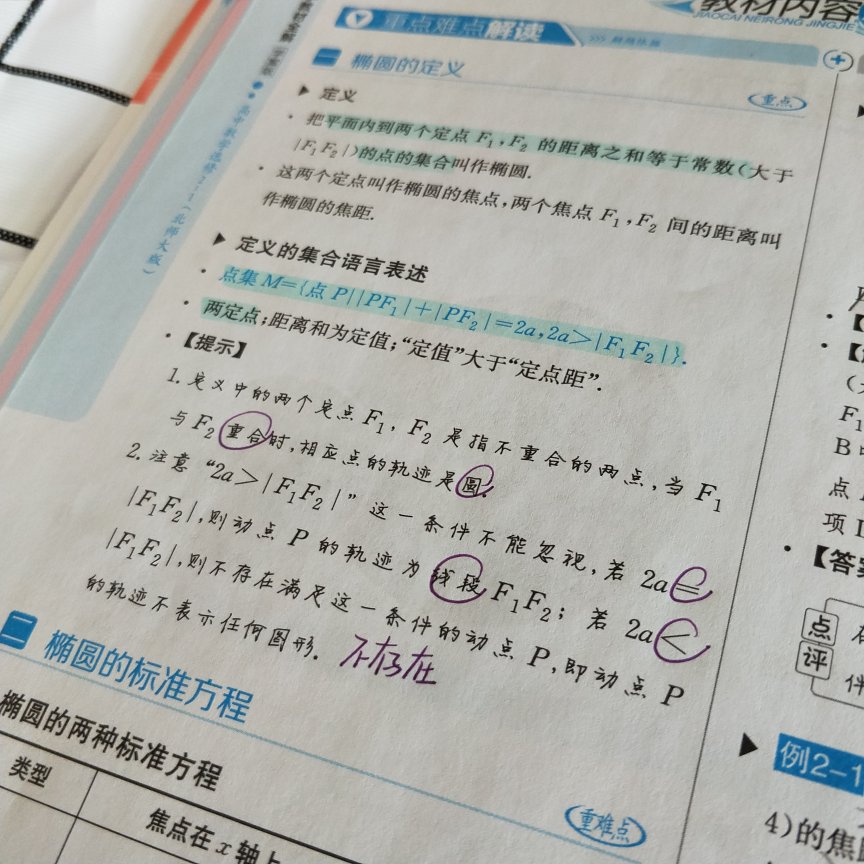 教材内容
JIAOCAI NEIRONG JINGJIE
重点难点解读
一 椭圆的定义
重点
▶ 定义
· 把平面内到两个定点 F₁,F₂ 的距离之和等于常数(大于
|F₁F₂|)的点的集合叫作椭圆.
· 这两个定点叫作椭圆的焦点,两个焦点 F₁,F₂ 间的距离叫
作椭圆的焦距.
▶ 定义的集合语言表述
· 点集 M={点 P||PF₁|+|PF₂|=2a,2a>|F₁F₂|}.
· 两定点;距离和为定值;“定值”大于“定点距”.
· 【提示】
1. 定义中的两个定点 F₁, F₂ 是指不重合的两点,当 F₁
与 F₂ 重合时,相应点的轨迹是圆.
2. 注意 “2a>|F₁F₂|” 这一条件不能忽视,若 2a=
|F₁F₂|,则动点 P 的轨迹为线段 F₁F₂; 若 2a<
|F₁F₂|,则不存在满足这一条件的动点 P,即动点 P
的轨迹不表示任何图形.
不存在
二 椭圆的标准方程
重难点
椭圆的两种标准方程
类型
焦点在 x 轴上
高中数学选修2-1(北师大版)
F₁
B
点
项
· 【答案
点评
▶ 例2-1
4)的焦